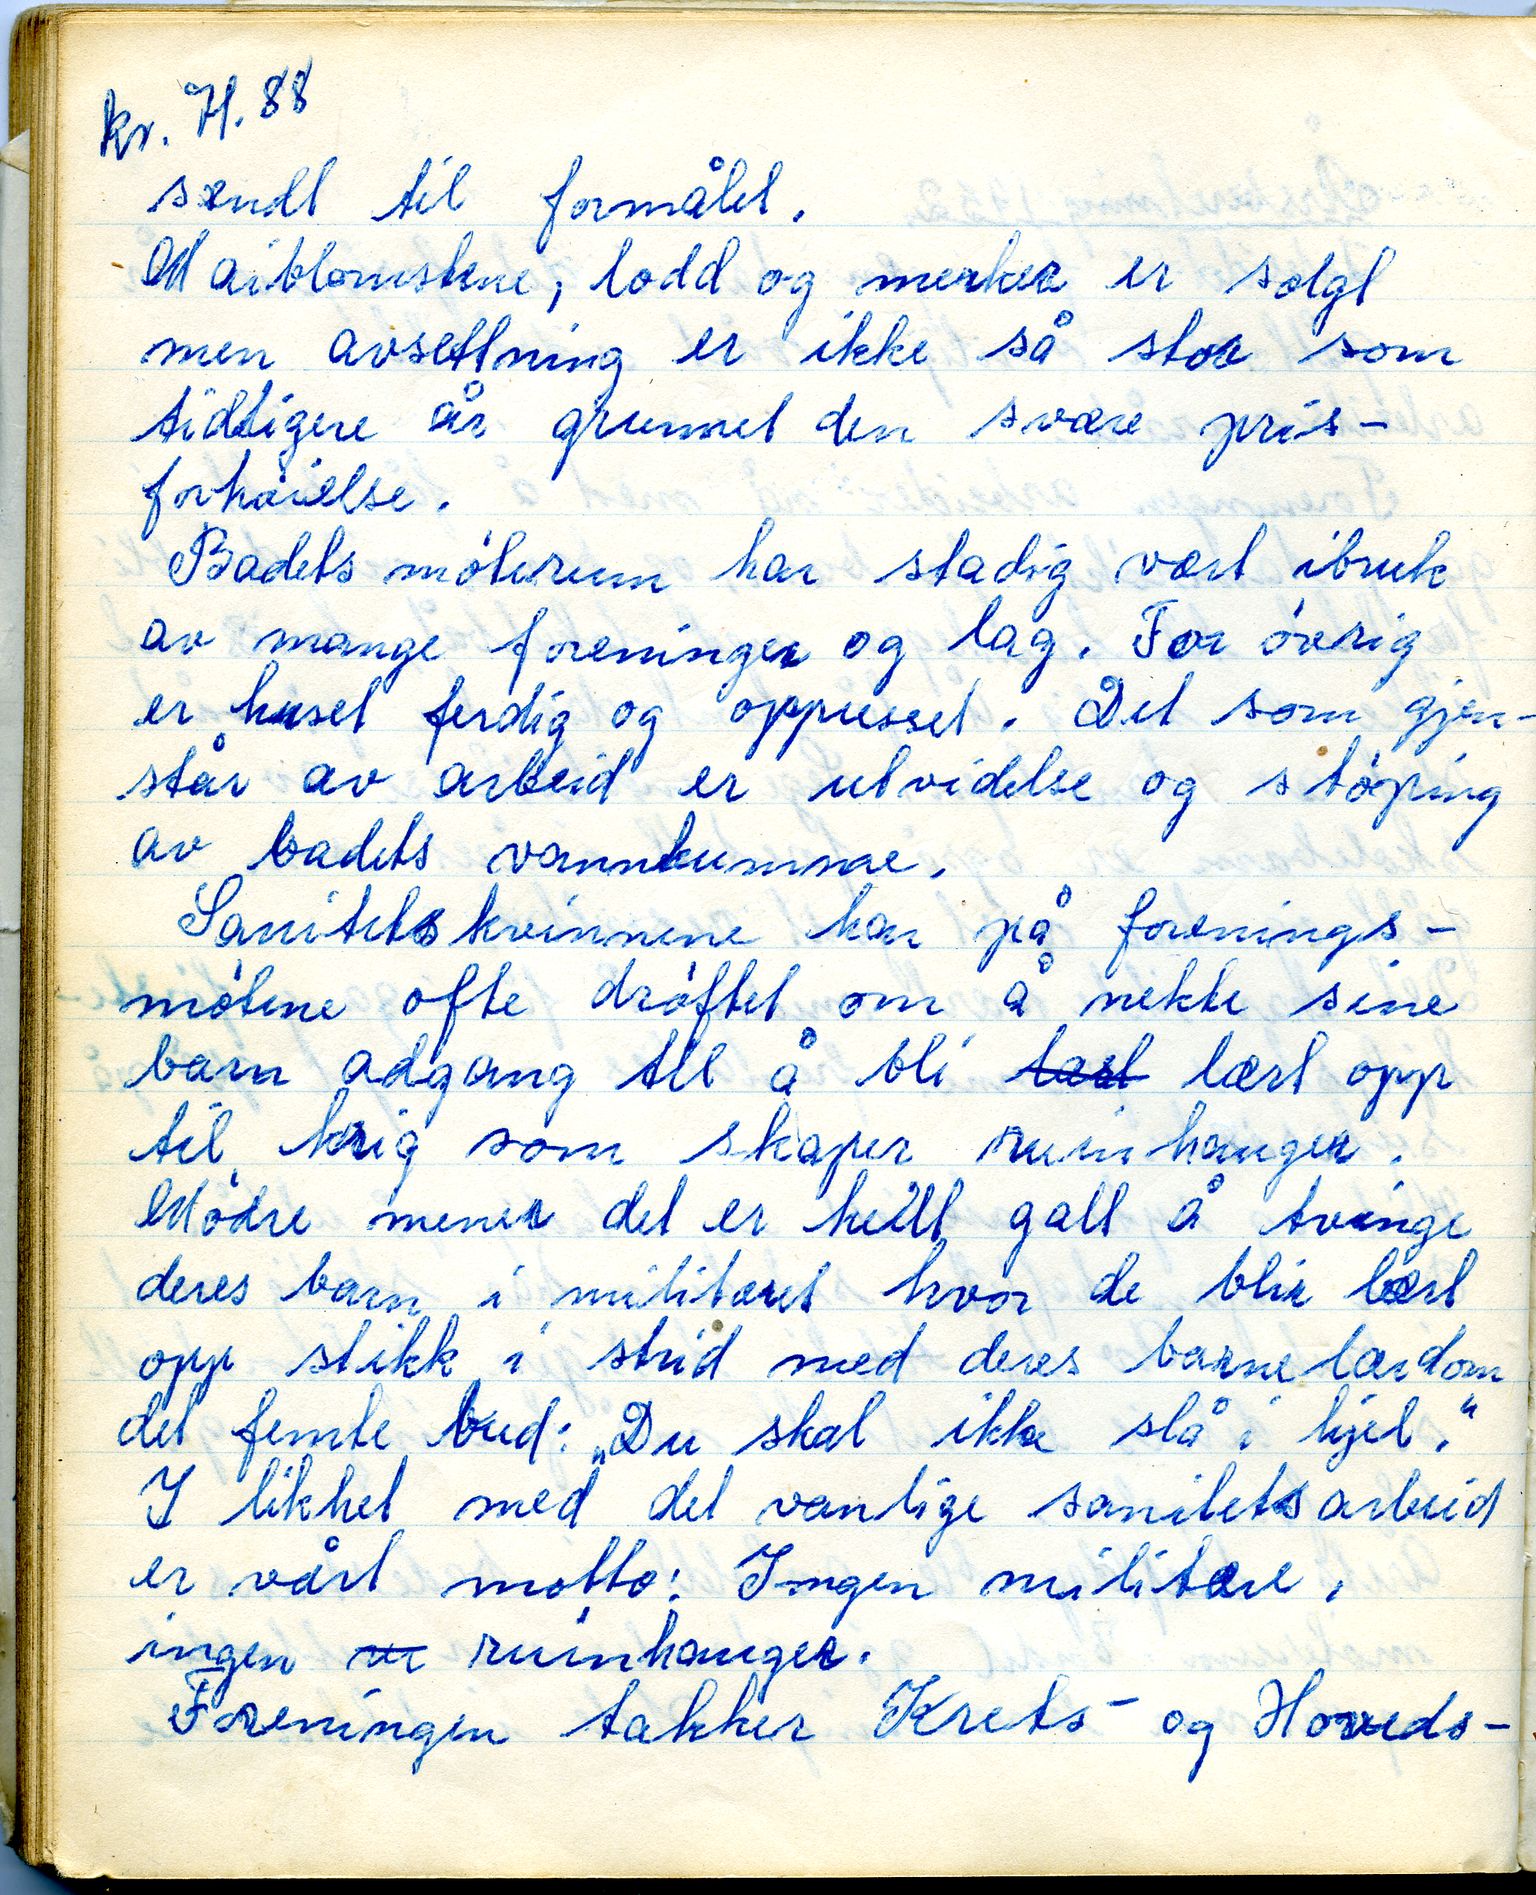 kr. H. 88
sendt til formålet.
Maiblomstene, lodd og merker er solgt
men avsettning er ikke så stor som
tidligere år grunnet den svære pris-
forhøielse.
Badets møterum har stadig vært ibruk
av mange foreninger og lag. For øvrig
er huset ferdig og oppusset. Det som gjen-
står av arbeid er utvidelse og støping
av badets vannkumme.
Sanitetskvinnene har på forenings-
møtene ofte drøftet om å nekte sine
barn adgang til å bli lært opp
til krig som skaper ruinhauger.
Mødre mener det er heilt galt å tvinge
deres barn i militæret hvor de blir lært
opp stikk i strid med deres barnelærdom
det femte bud: „Du skal ikke slå i hjel."
I likhet med det vanlige sanitetsarbeid
er vårt motto: Ingen militære,
ingen ruinhauger.
Foreningen takker Krets- og Hoveds-